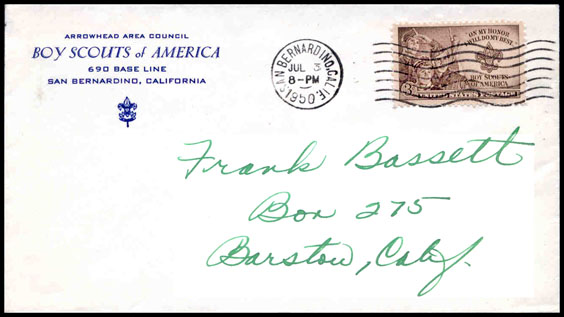 ARROWHEAD AREA COUNCIL
BOY SCOUTS of AMERICA
690 BASE LINE
SAN BERNARDINO, CALIFORNIA
SAN BERNARDINO, CALIF.
JUL 3
8-PM
1950
"ON MY HONOR
I WILL DO MY BEST"
BOY SCOUTS
OF AMERICA
3¢
UNITED STATES POSTAGE
Frank Bassett
Box 275
Barstow, Calif.